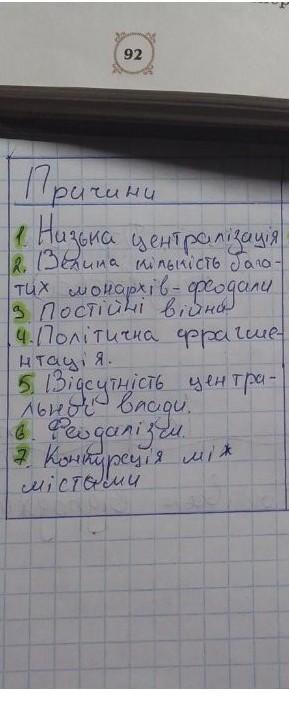 92
Причини
1. Низька централізація
2. Велика кількість бага-
тих монархів-феодали
3 Постійні війна
4. Політична фрагме-
нтація.
5. Відсутність центра-
льної влади.
6. Феодалізм.
7. Конкуреція між
містами